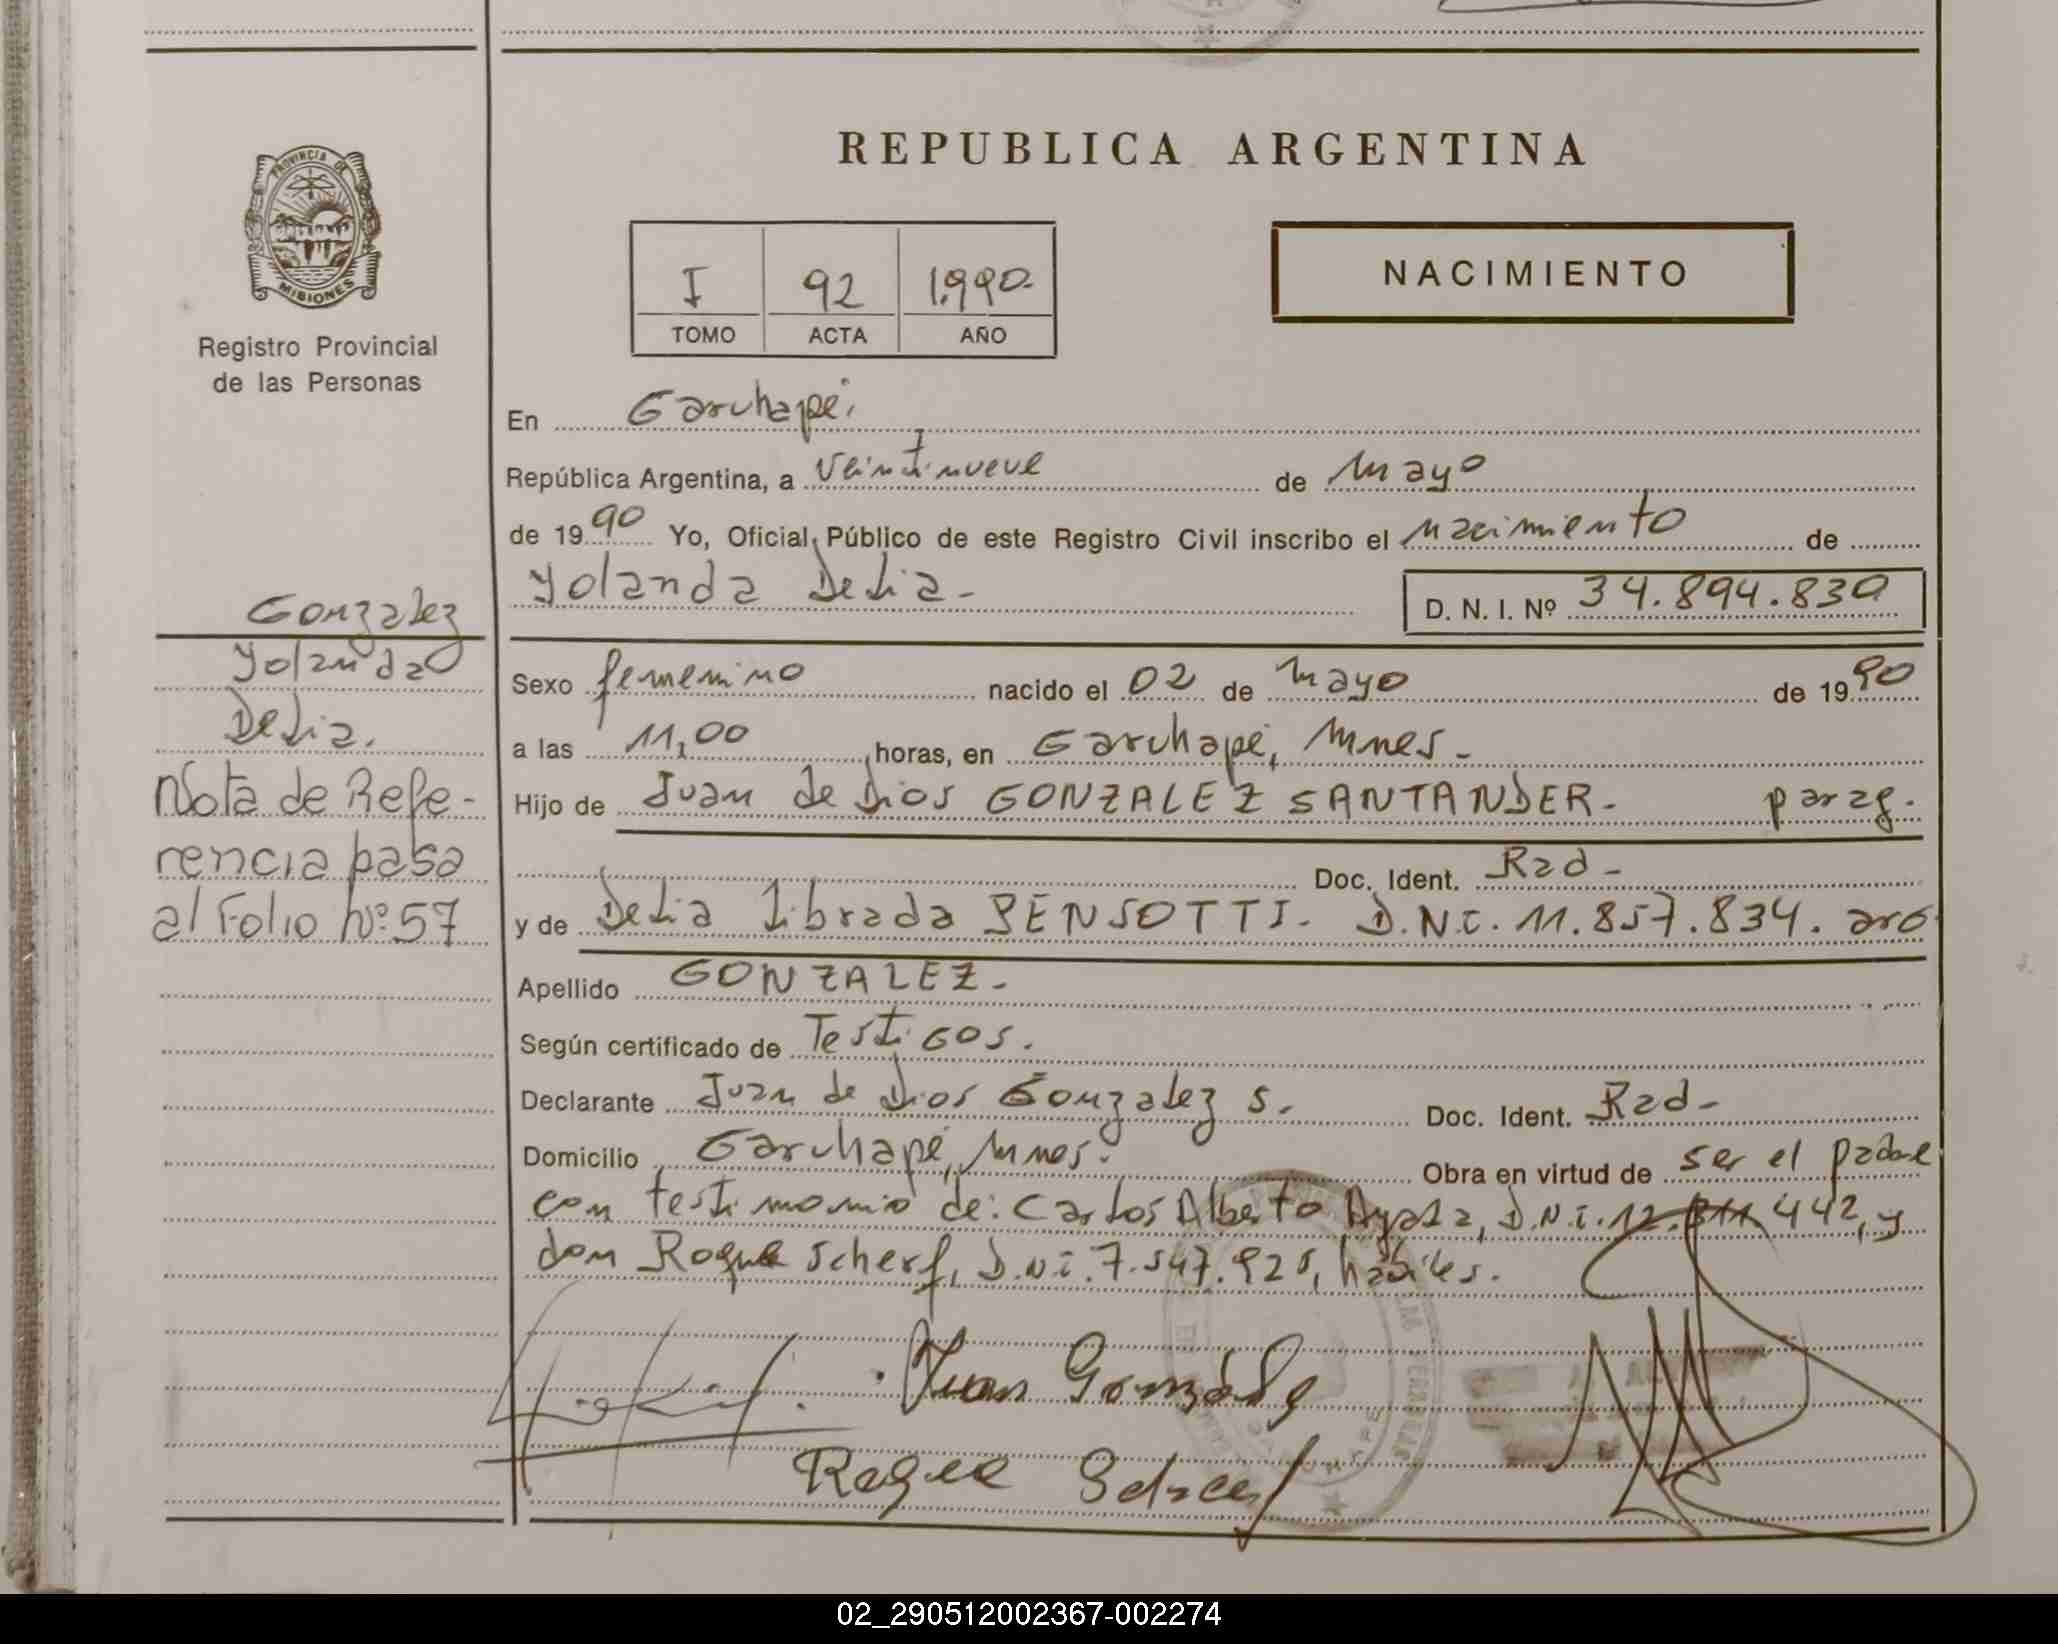 REPUBLICA ARGENTINA
PROVINCIA DE
MISIONES
Registro Provincial
de las Personas
I 92 1.990.
TOMO ACTA AÑO
NACIMIENTO
En Garuhapé,
República Argentina, a Veintinueve de Mayo
de 1990 Yo, Oficial Público de este Registro Civil inscribo el nacimiento de
Yolanda Delia.- D. N. I. Nº 34.894.830
Gonzalez
Yolanda
Delia.
Nota de Refe-
rencia pasa
al Folio Nº: 57
Sexo femenino nacido el 02 de Mayo de 1990
a las 11,00 horas, en Garuhapé, Mnes.-
Hijo de Juan de Dios GONZALEZ SANTANDER.- parag.
Doc. Ident. Rad-
y de Delia Librada PENSOTTI.- D.N.I. 11.857.834. arg
Apellido GONZALEZ.-
Según certificado de Testigos.
Declarante Juan de Dios Gonzalez S.- Doc. Ident. Rad-
Domicilio Garuhapé, Mnes.- Obra en virtud de ser el padre
con testimonio de: Carlos Alberto Ayala, D.N.I. 12. 442, y
don Roque Scherf, D.N.I. 7.547.925, hábiles.
Juan González
Roque Scherf
02_290512002367-002274